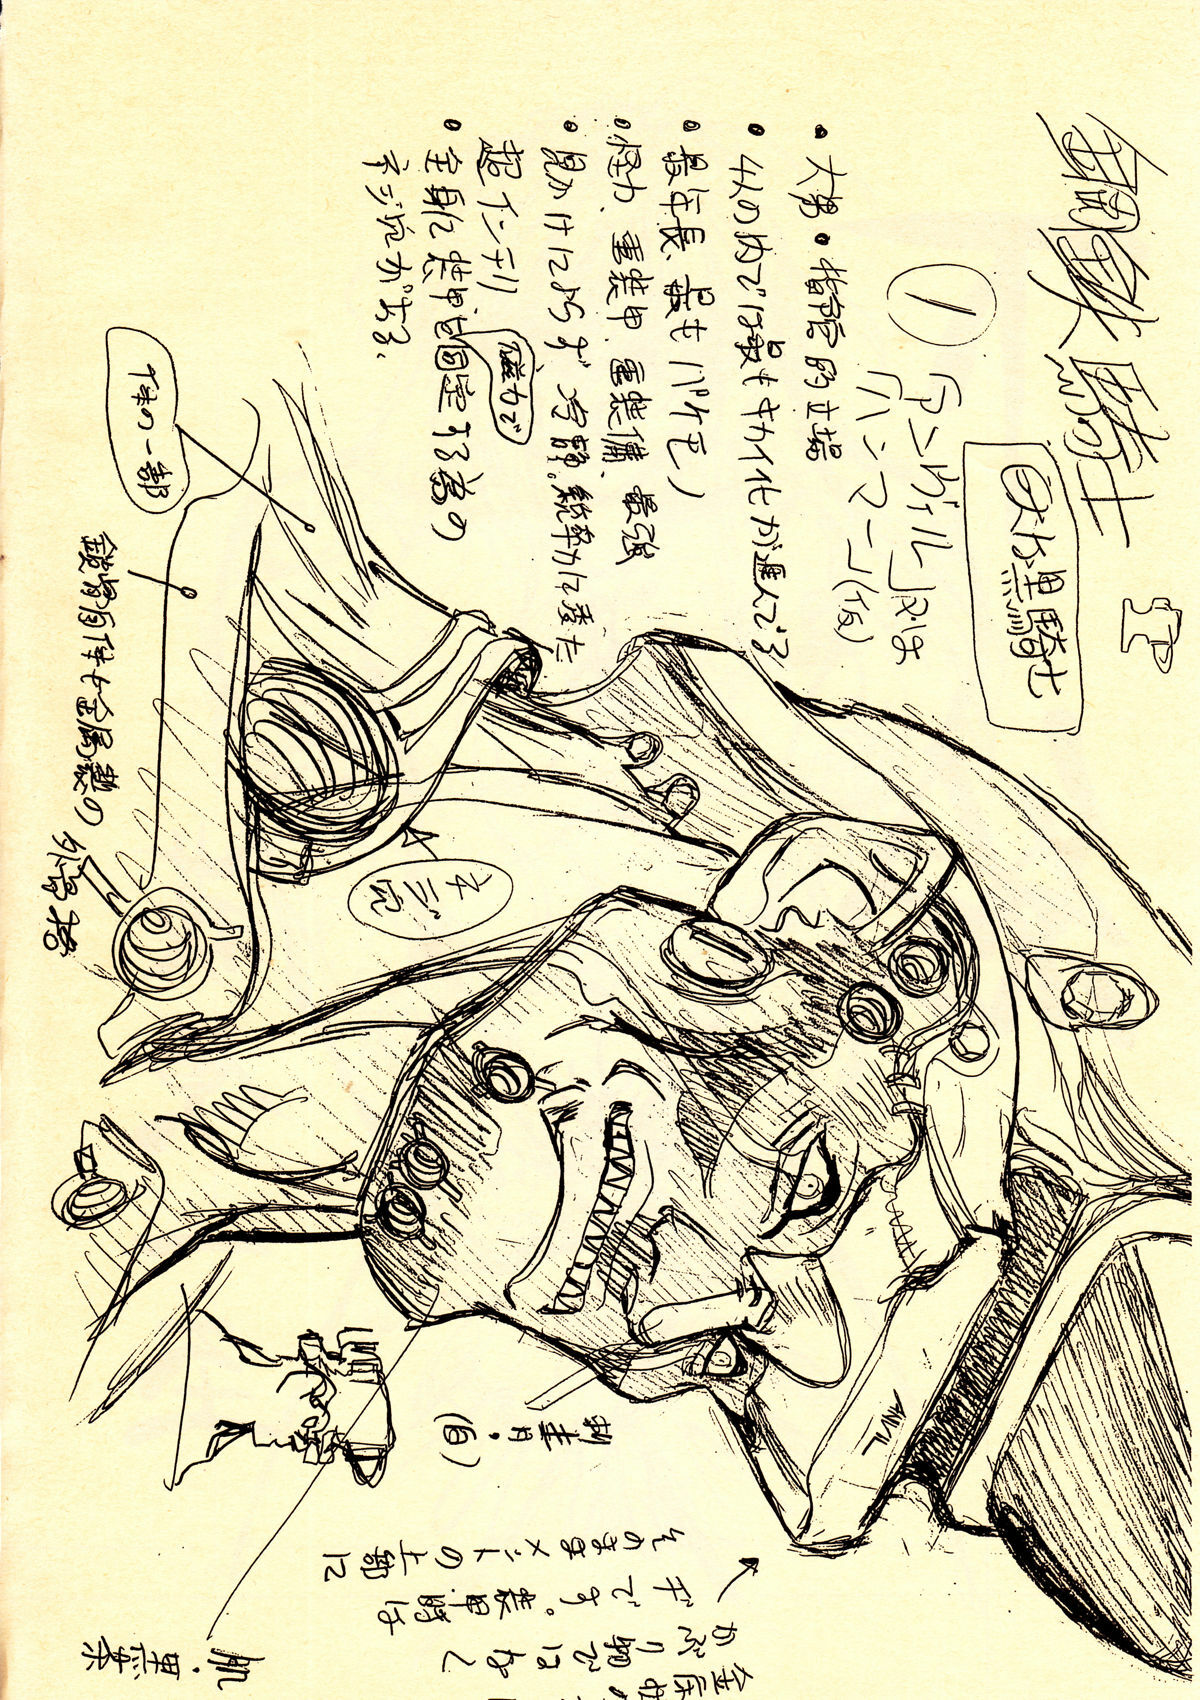 鋼鉄騎士
白木黒騎士
①
アンヴィル又は
ハンマー(仮)
• 大男・指揮的立場
• 4人の内では最もキカイ化が進んでる
• 最年長、最もパイモノ
• 怪力、重装甲、重装備、最強
• 見かけによらず冷静。統率力に秀た
超インテリ
磁力で
• 全身に装甲を固定する為の
ネジ穴がある、
体の一部
鎖骨自体も金属製の
外骨格
ネジ穴
ANVIL
(白)
金属
かぶり物ではなく
です。装甲時は
そのままメットの上部に
肌・黒